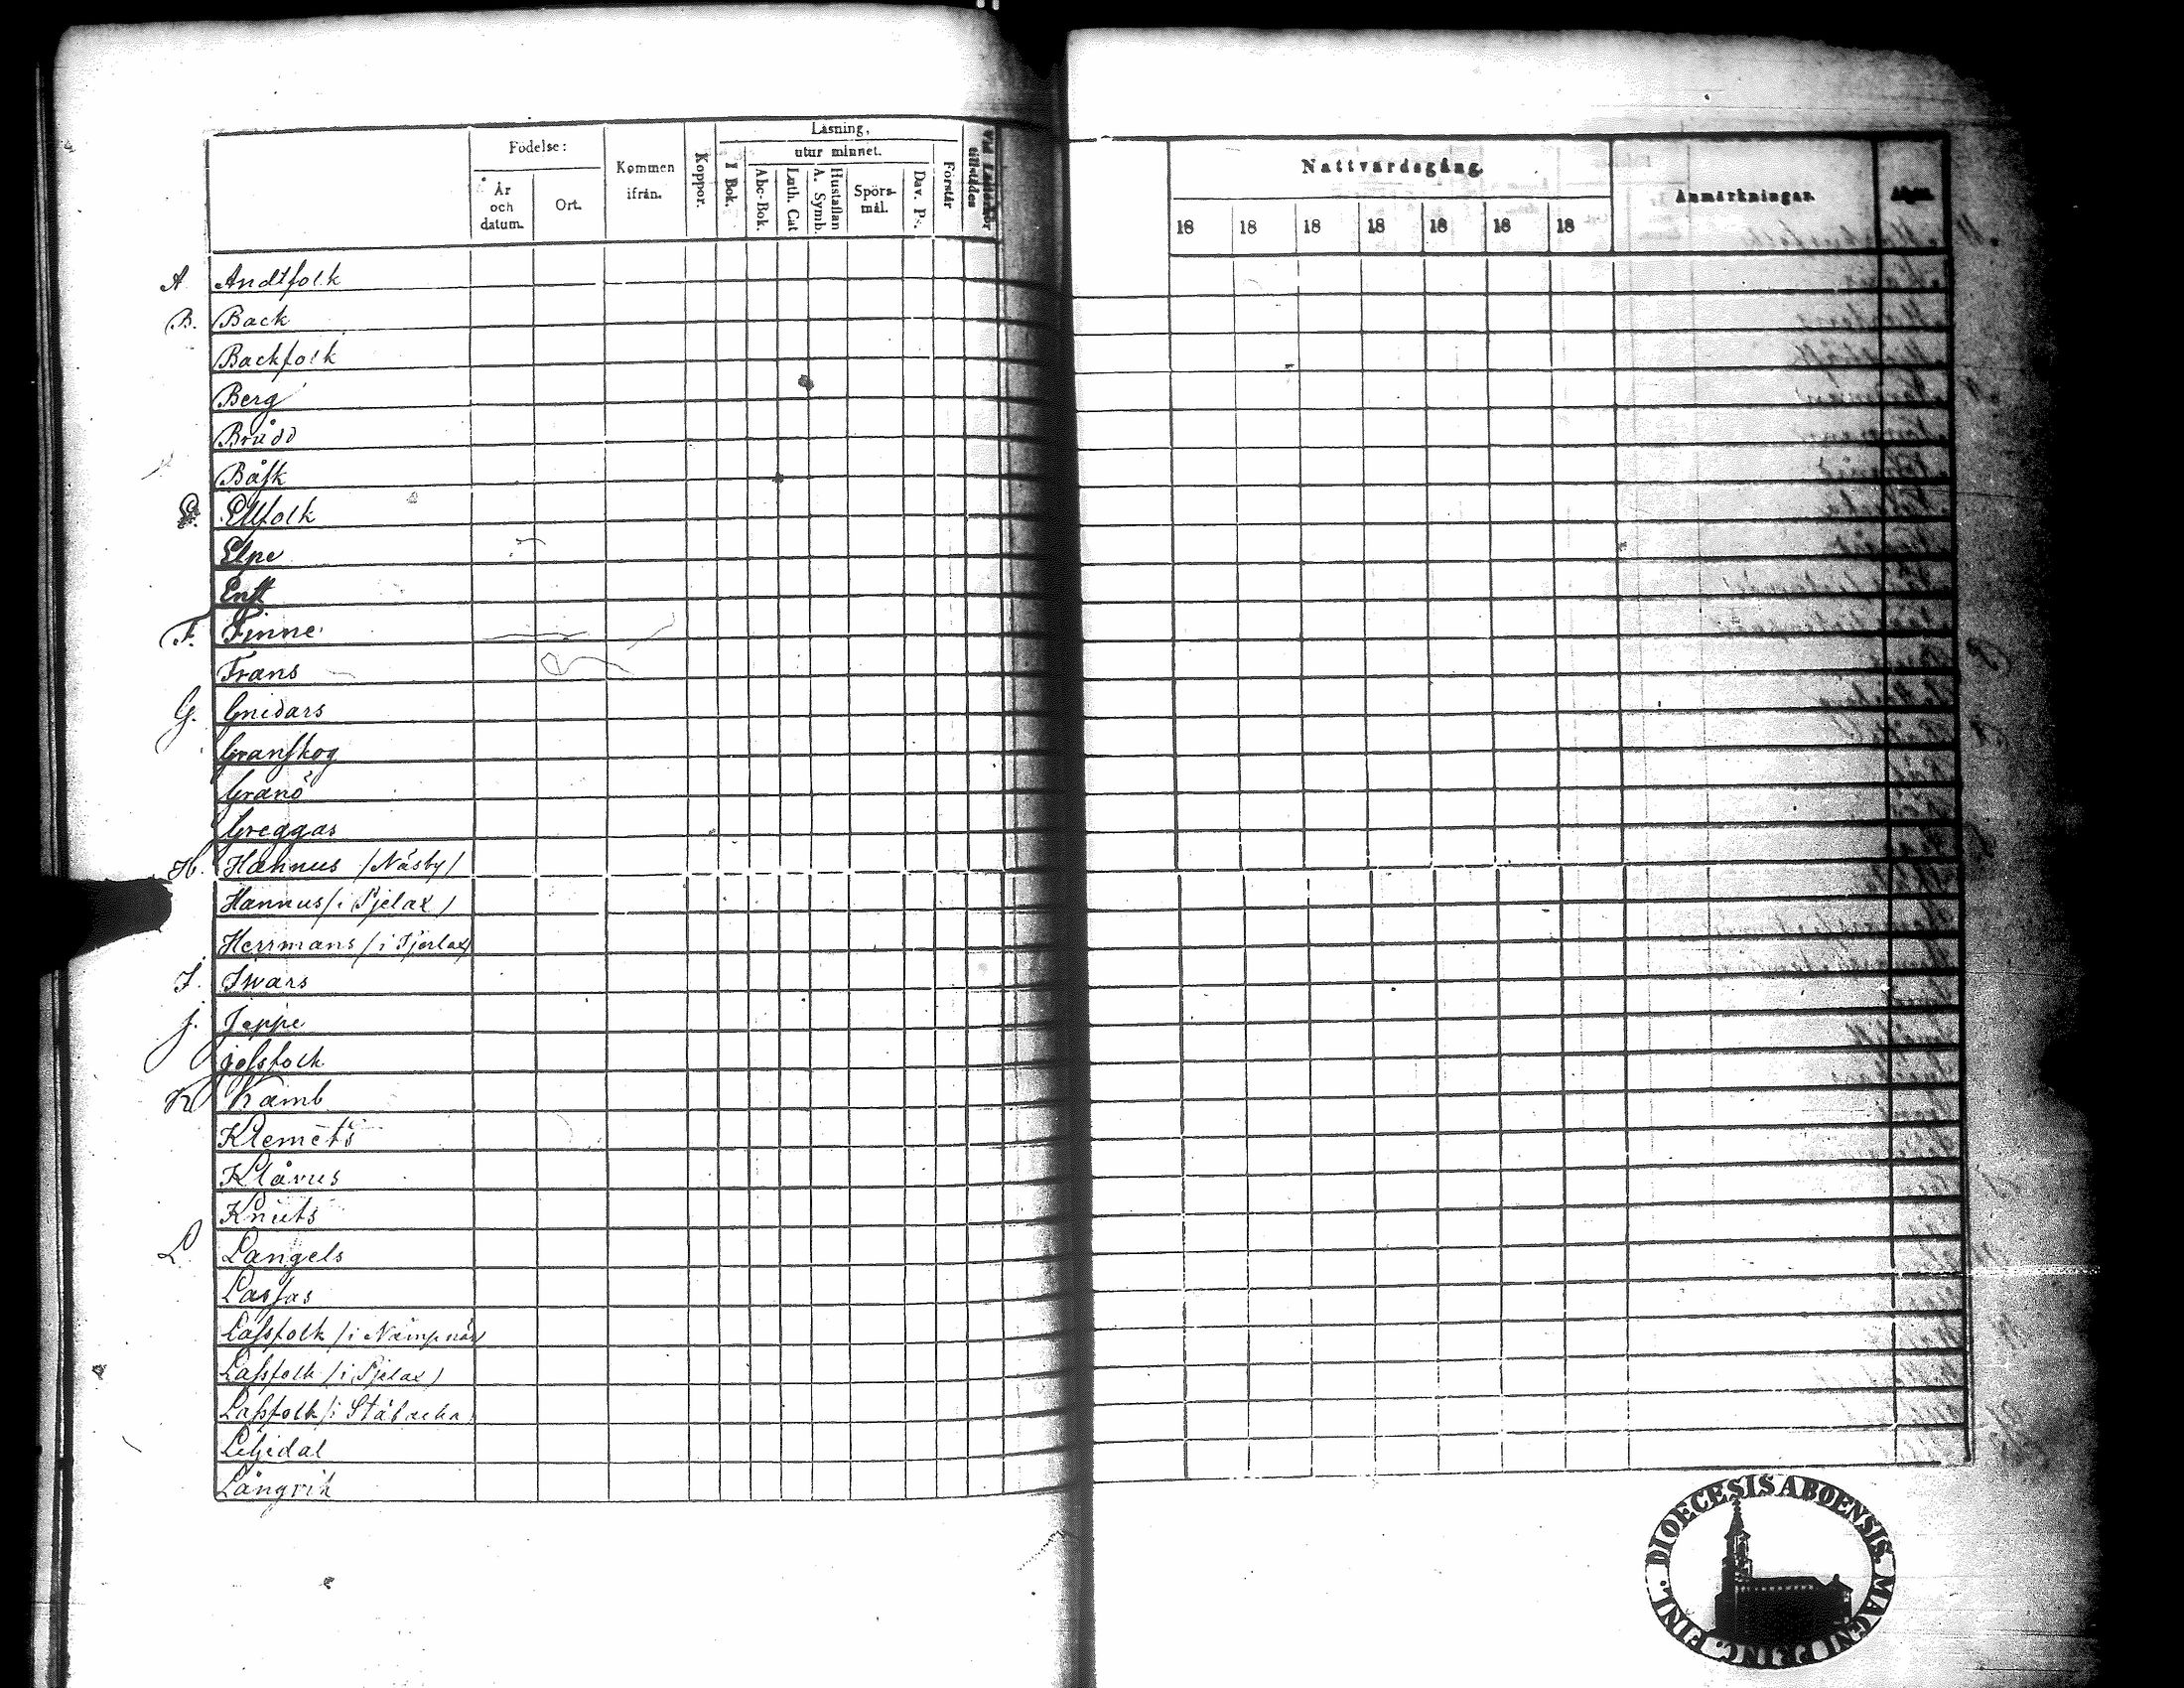 Födelse:
År och datum.
Ort.
Kommen ifrån.
Koppor.
Läsning,
I Bok.
utur minnet.
Abc-Bok.
Luth. Cat
Hustaflan A. Symb.
Spörsmål.
Dav. Ps.
Förstår
Nattvardsgång.
18 18 18 18 18 18 18
Anmärkningar.
A Andtfolk
B. Back
Backfolk
Berg
Brudd
Båsk
E. Ellfolk
Elpe
Enst
F. Finne
Frans
G. Gnidars
Granskog
Granö
Greggas
H. Hannus /Näsby/
Hannus /i Pjelax/
Herrmans /i Tjerlax/
I. Iwars
J. Jeppe
Jossfolk
K Kamb
Klemets
Klåvus
Knuts
L Langels
Lassas
Lassfolk /i Nämpnäs/
Lassfolk /i Pjelax/
Lassfolk /i Ståbacka/
Liljedal
Långvik
DIOECESIS ABOENSIS. MAGNI PRINC. FINL.